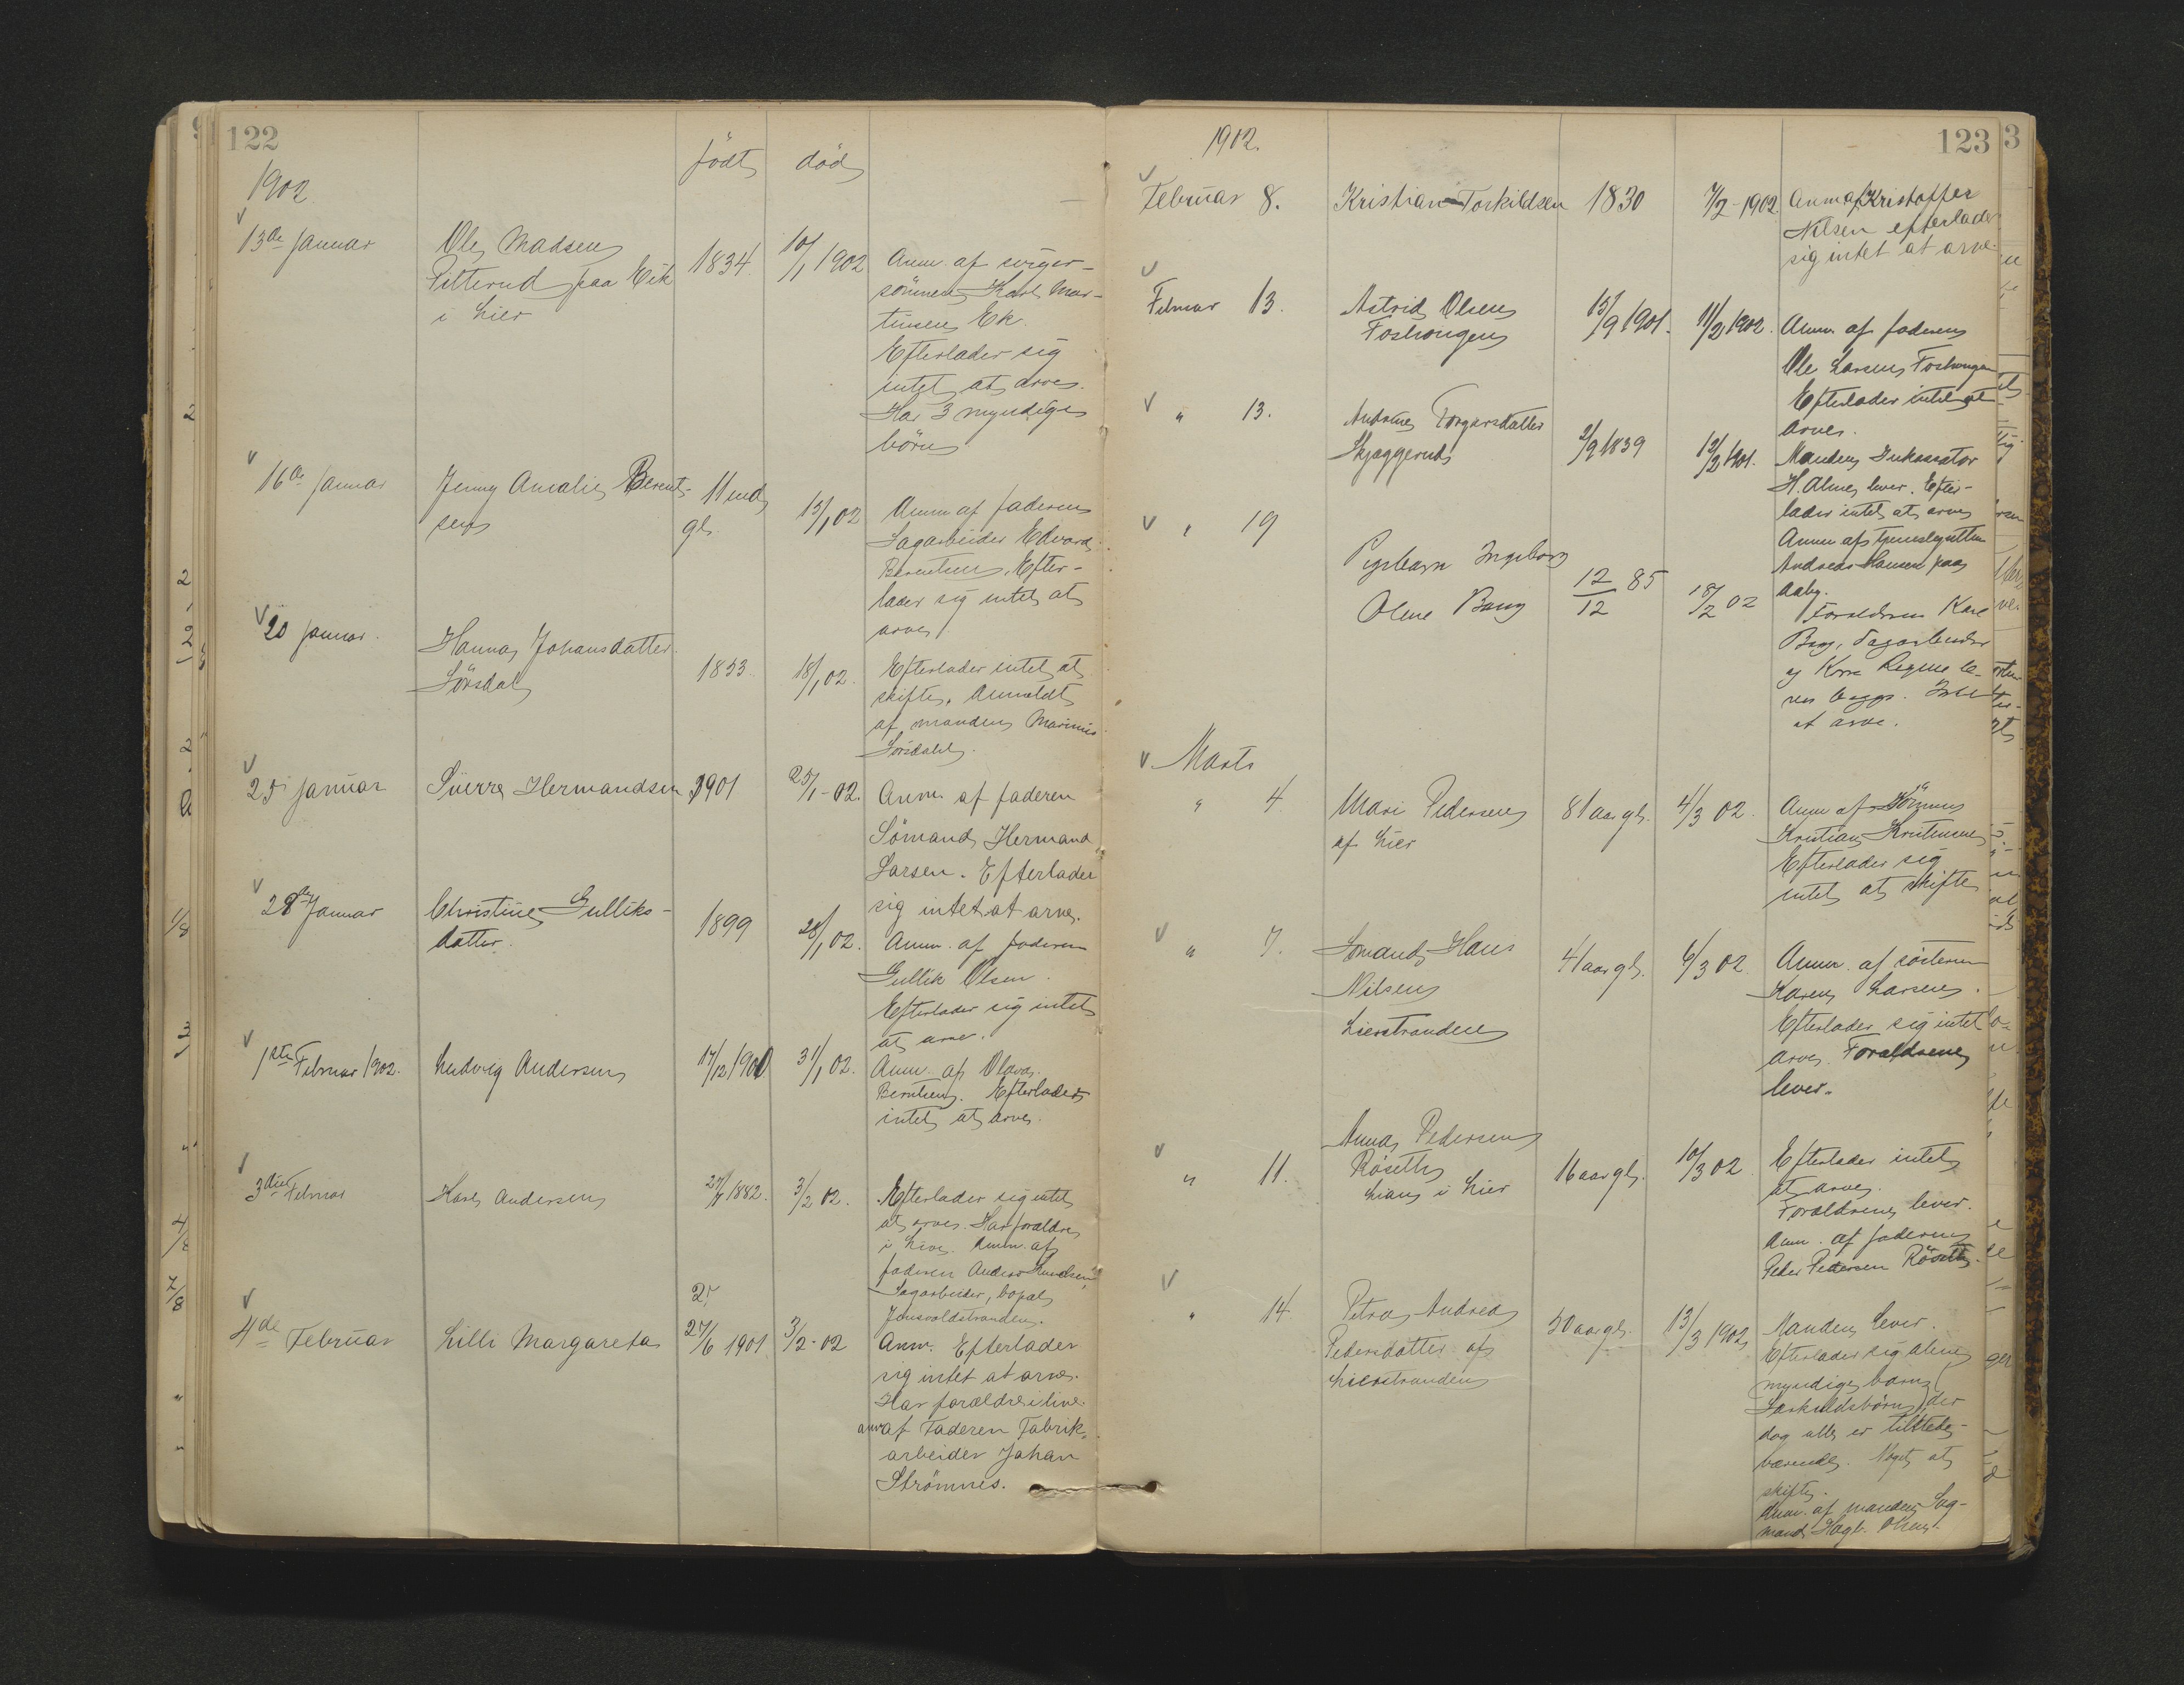 122
født død
1902
13de Januar
Ole Madsen
Pitterud paa Eik
i Lier
1834
10/1 1902
Anm. af sviger-
sönnen Karl Mar-
tinsen Ek.
Efterlader sig
intet at arve.
Har 3 myndige
börn
16de Januar
Jenny Amalie Berent-
sen
11 md
gl.
15/1 02
Anm af faderen
Sagarbeider Edvard
Berentsen. Efter-
lader sig intet at
arve
20 Januar.
Hanna Johansdatter
Sörsdal
1853
18/1 02.
Efterlader intet at
skifte. Anmeldt
af manden Marinus
Sörsdahl.
25 Januar
Sverre Hermandsen
1901
25/1-02.
Anm. af faderen
Sömand Hermand
Larsen. Efterlader
sig intet at arve.
28de Januar
Christine Gulliks-
datter.
1899
28/1 02.
Anm. af faderen
Gullik Olsen.
Efterlader sig intet
at arve.
1ste Februar 1902.
Ludvig Andersen
17/12 1900
31/1 02.
Anm. af Olava
Berntsen. Efterlader
intet at arve.
3die Februar
Karl Andersen
1882.
3/2 02.
Efterlader sig intet
at arve. Har forældre
i Live. Anm. af
faderen Anders
Sagarbeider, bopæl
4de Februar
Lilli Margareta
27/6 1901
3/2-02
Anm. Efterlader
sig intet at arve.
Har forældre i live.
anm af Faderen Fabrik-
arbeider Johan
Strömnes.
1902.
123
Februar 8.
Kristian Torkildsen
1830
7/2-1902.
Anm af Kristoffer
Nilsen efterlader
sig intet at arve.
Februar 13.
Astrid Olsen
15/9 1901.
11/2 1902.
Anm. af faderen
Ole Larsen
Efterlader intet at
arve.
" 13.
Torgersdatter
Skjæggerud
2/9 1839
12/2 1901.
Manden Inkassator
H. Alme lever. Efter-
lader intet at arve
Anm af
Andreas Hansen paa
Aaby.
" 19
Pigebarn Ingeborg
Oline Bang
12/12 85
18/2 02
Forældrene Karl
Bang, Sagarbeider
og Kone
begge. Intet
at arve.
Marts
" 4.
Mari Pedersen
af Lier
81 aar gl.
4/3 02.
Anm af
Kristian Kristensen
Efterlader sig
intet at skifte
" 7.
Sømand Hans
Nilsen
Lierstranden
41 aar gl.
6/3 02.
Anm. af sösteren
Karen Larsen.
Efterlader sig intet
arve. Forældrene
lever.
" 11.
Anna Pedersen
Röseth
Lian i Lier
16 aar gl.
10/3 02
Efterlader intet
at arve.
Forældrene lever.
Anm. af faderen
Peder Pedersen Röseth.
" 14
Petra Andrea
Pedersdatter af
Lierstranden
50 aar gl.
13/3 1902
Manden lever.
Efterlader sig alene
myndige barn
Særkuldsbörn, der
dog alle er tilstede-
værende. Noget at
skifte.
Anm. af manden Sag-
mand Hagb. Olsen.